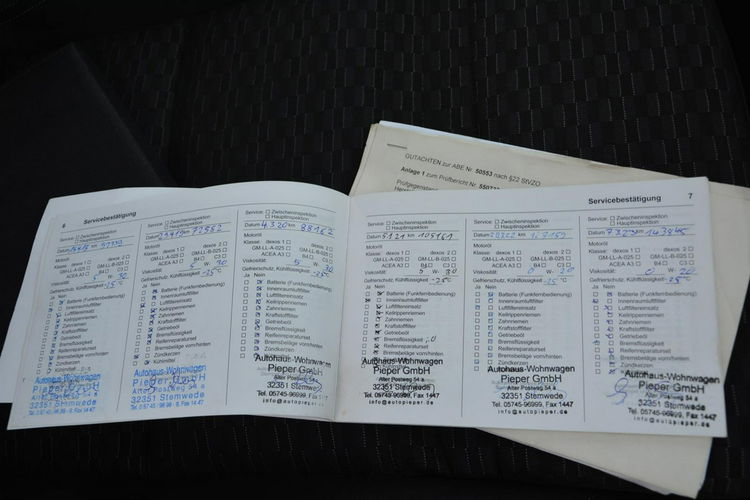 GUTACHTEN zur ABE Nr. 50553 nach §22 StVZO
Anlage 1 zum Prüfbericht Nr.
6
Servicebestätigung
Service: Zwischeninspektion
Hauptinspektion
Datum km
Motoröl
Klasse: dexos 1 dexos 2
GM-LL-A-025 GM-LL-B-025
ACEA A3 B4 C3
Viskosität: 5 W- 30
Gefrierschutz, Kühlflüssigkeit -25 °C
Ja Nein
Batterie (Funkfernbedienung)
Innenraumluftfilter
Luftfiltereinsatz
Keilrippenriemen
Zahnriemen
Kraftstofffilter
Getriebeöl
Bremsflüssigkeit
Reifenreparaturset
Bremsbeläge vorn/hinten
Zündkerzen
Kühlmittel
Autohaus-Wohnwagen
Pieper GmbH
Alter Postweg 54 a
32351 Stemwede
Tel. 05745-96999, Fax 1447
Service: Zwischeninspektion
Hauptinspektion
Datum km 72562
Motoröl
Klasse: dexos 1 dexos 2
GM-LL-A-025 GM-LL-B-025
ACEA A3 B4 C3
Viskosität: 5 W- 30
Gefrierschutz, Kühlflüssigkeit -25 °C
Ja Nein
Batterie (Funkfernbedienung)
Innenraumluftfilter
Luftfiltereinsatz
Keilrippenriemen
Zahnriemen
Kraftstofffilter
Getriebeöl
Bremsflüssigkeit
Reifenreparaturset
Bremsbeläge vorn/hinten
Zündkerzen
Kühlmittel
Autohaus-Wohnwagen
Pieper GmbH
Alter Postweg 54 a
32351 Stemwede
Tel. 05745-96999, Fax 1447
Service: Zwischeninspektion
Hauptinspektion
Datum 4.3.20 km 88162
Motoröl
Klasse: dexos 1 dexos 2
GM-LL-A-025 GM-LL-B-025
ACEA A3 B4 C3
Viskosität: 5 W- 30
Gefrierschutz, Kühlflüssigkeit -25 °C
Ja Nein
Batterie (Funkfernbedienung)
Innenraumluftfilter
Luftfiltereinsatz
Keilrippenriemen
Zahnriemen
Kraftstofffilter
Getriebeöl
Bremsflüssigkeit
Reifenreparaturset
Bremsbeläge vorn/hinten
Zündkerzen
Autohaus-Wohnwagen
Pieper GmbH
Alter Postweg 54 a
32351 Stemwede
Tel. 05745-96999, Fax 1447
info@autopieper.de
Servicebestätigung
7
Service: Zwischeninspektion
Hauptinspektion
Datum 5.1.21 km 105161
Motoröl
Klasse: dexos 1 dexos 2
GM-LL-A-025 GM-LL-B-025
ACEA A3 B4 C3
Viskosität: 5 W- 30
Gefrierschutz, Kühlflüssigkeit -25 °C
Ja Nein
Batterie (Funkfernbedienung)
Innenraumluftfilter
Luftfiltereinsatz
Keilrippenriemen
Zahnriemen
Kraftstofffilter
Getriebeöl
Bremsflüssigkeit
Reifenreparaturset
Bremsbeläge vorn/hinten
Zündkerzen
Autohaus-Wohnwagen
Pieper GmbH
Alter Postweg 54 a
32351 Stemwede
Tel. 05745-96999, Fax 1447
info@autopieper.de
Service: Zwischeninspektion
Hauptinspektion
Datum km
Motoröl
Klasse: dexos 1 dexos 2
GM-LL-A-025 GM-LL-B-025
ACEA A3 B4 C3
Viskosität: 0 W- 20
Gefrierschutz, Kühlflüssigkeit -25 °C
Ja Nein
Batterie (Funkfernbedienung)
Innenraumluftfilter
Luftfiltereinsatz
Keilrippenriemen
Zahnriemen
Kraftstofffilter
Getriebeöl
Bremsflüssigkeit
Reifenreparaturset
Bremsbeläge vorn/hinten
Zündkerzen
Autohaus-Wohnwagen
Pieper GmbH
Alter Postweg 54 a
32351 Stemwede
Tel. 05745-96999, Fax 1447
info@autopieper.de
Service: Zwischeninspektion
Hauptinspektion
Datum 7.3.23 km 143945
Motoröl
Klasse: dexos 1 dexos 2
GM-LL-A-025 GM-LL-B-025
ACEA A3 B4 C3
Viskosität: 0 W- 20
Gefrierschutz, Kühlflüssigkeit -25 °C
Ja Nein
Batterie (Funkfernbedienung)
Innenraumluftfilter
Luftfiltereinsatz
Keilrippenriemen
Zahnriemen
Kraftstofffilter
Getriebeöl
Bremsflüssigkeit
Reifenreparaturset
Bremsbeläge vorn/hinten
Zündkerzen
Autohaus-Wohnwagen
Pieper GmbH
Alter Postweg 54 a
32351 Stemwede
Tel. 05745-96999, Fax 1447
info@autopieper.de